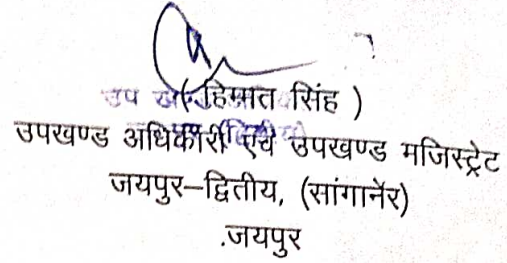 ( हिम्मत सिंह )
उपखण्ड अधिकारी एवं उपखण्ड मजिस्ट्रेट
जयपुर–द्वितीय, (सांगानेर)
.जयपुर